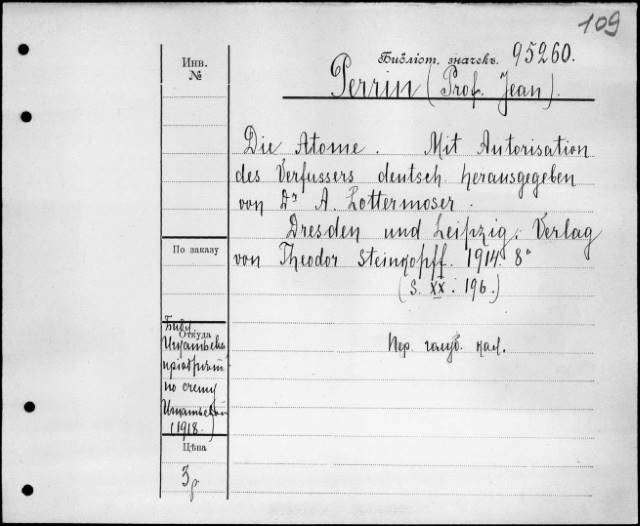 109
Инв.
№
Библіот. значекъ. 95260.
Perrin (Prof. Jean).
Die Atome. Mit Autorisation
des Verfussers deutsch herausgegeben
von Dr A. Lottermoser.
Dresden und Leipzig. Verlag
von Theodor Steinkopff. 1914. 8°
(S. XX. 196.)
По заказу
Откуда
по счету
(1918.)
Пер. голуб. кал.
Цѣна
3р